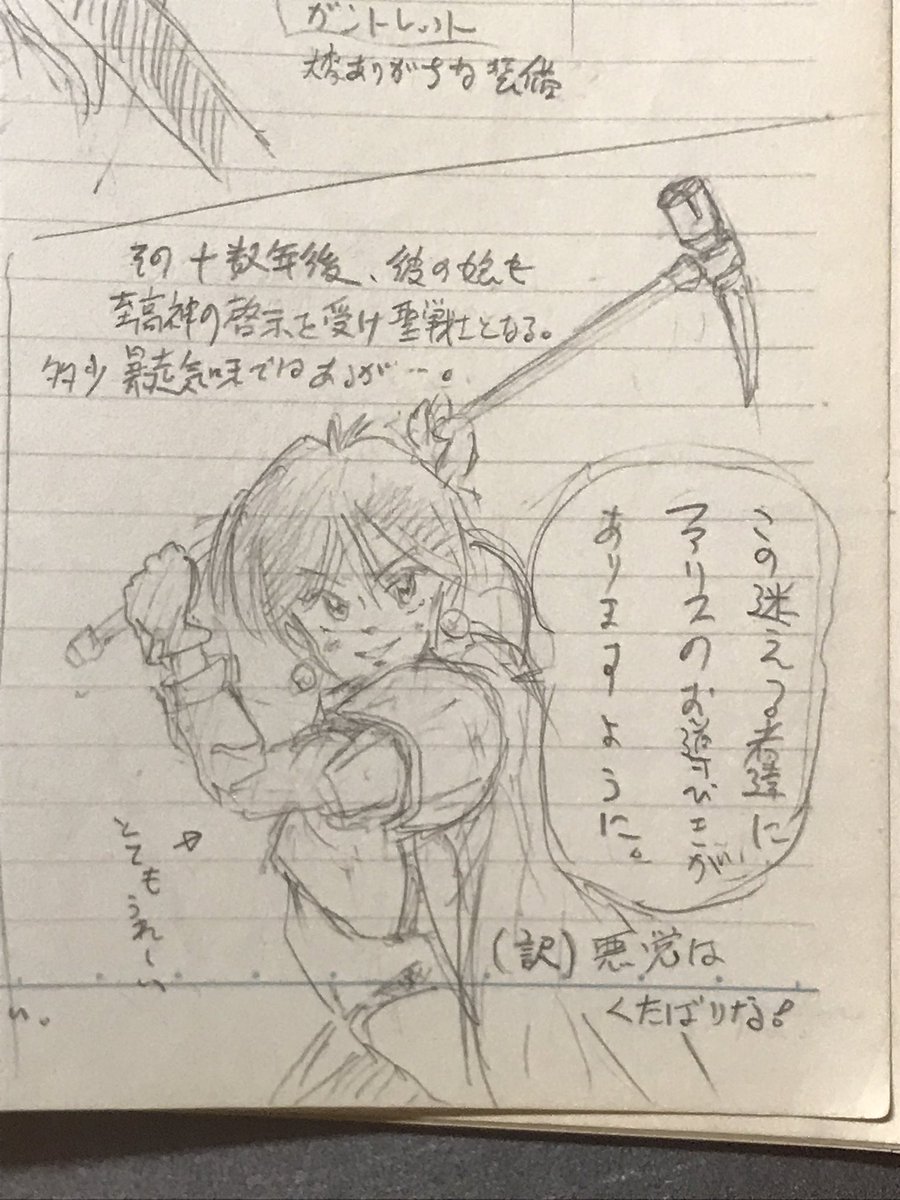 ガントレット
大変ありがちな装備
その十数年後、彼の娘も
至高神の啓示を受け聖戦士となる。
多少暴走気味ではあるが…。
この迷える者達に
ファリスのお導びきが、
ありますように。
とてもうれしい
(訳)悪党は
くたばりな!
い。